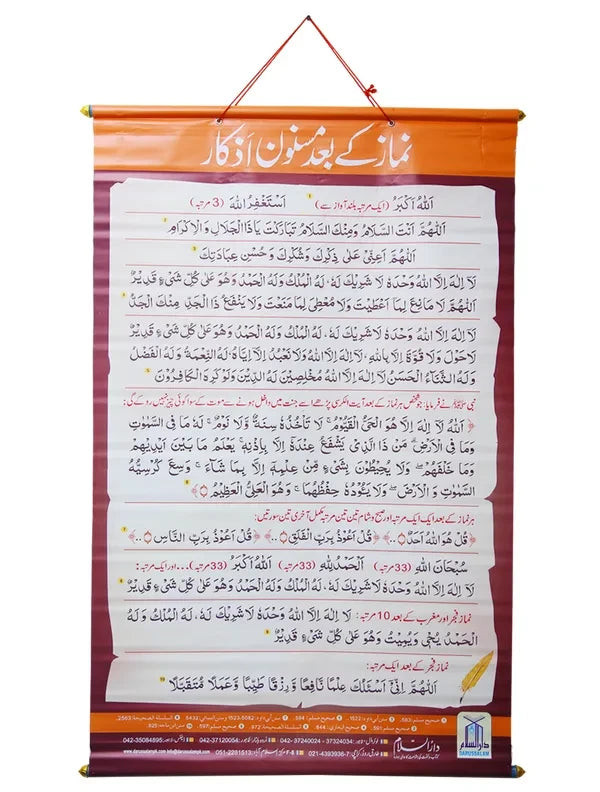 نماز کے بعد مسنون اذکار
اَللهُ اَكْبَرُ (ایک مرتبہ بلند آواز سے) ۱ اَسْتَغْفِرُ اللهَ (3 مرتبہ)
اَللّٰهُمَّ اَنْتَ السَّلَامُ وَمِنْكَ السَّلَامُ تَبَارَكْتَ يَا ذَا الْجَلَالِ وَالْاِكْرَامِ ۲
اَللّٰهُمَّ اَعِنِّيْ عَلٰى ذِكْرِكَ وَشُكْرِكَ وَحُسْنِ عِبَادَتِكَ ۳
لَا اِلٰهَ اِلَّا اللهُ وَحْدَهٗ لَا شَرِيْكَ لَهٗ، لَهُ الْمُلْكُ وَلَهُ الْحَمْدُ وَهُوَ عَلٰى كُلِّ شَيْءٍ قَدِيْرٌ
اَللّٰهُمَّ لَا مَانِعَ لِمَا اَعْطَيْتَ وَلَا مُعْطِيَ لِمَا مَنَعْتَ وَلَا يَنْفَعُ ذَا الْجَدِّ مِنْكَ الْجَدُّ ۴
لَا اِلٰهَ اِلَّا اللهُ وَحْدَهٗ لَا شَرِيْكَ لَهٗ، لَهُ الْمُلْكُ وَلَهُ الْحَمْدُ وَهُوَ عَلٰى كُلِّ شَيْءٍ قَدِيْرٌ
لَا حَوْلَ وَلَا قُوَّةَ اِلَّا بِاللهِ، لَا اِلٰهَ اِلَّا اللهُ وَلَا نَعْبُدُ اِلَّا اِيَّاهُ، لَهُ النِّعْمَةُ وَلَهُ الْفَضْلُ
وَلَهُ الثَّنَاءُ الْحَسَنُ لَا اِلٰهَ اِلَّا اللهُ مُخْلِصِيْنَ لَهُ الدِّيْنَ وَلَوْ كَرِهَ الْكَافِرُوْنَ ۵
نبی ﷺ نے فرمایا: جو شخص ہر نماز کے بعد آیت الکرسی پڑھے اسے جنت میں داخل ہونے سے موت کے سوا کوئی چیز نہیں روکے گی:
﴿اَللهُ لَا اِلٰهَ اِلَّا هُوَ الْحَيُّ الْقَيُّوْمُ ۚ لَا تَاْخُذُهٗ سِنَةٌ وَّلَا نَوْمٌ ۚ لَهٗ مَا فِي السَّمٰوٰتِ
وَمَا فِي الْاَرْضِ ۗ مَنْ ذَا الَّذِيْ يَشْفَعُ عِنْدَهٗ اِلَّا بِاِذْنِهٖ ۚ يَعْلَمُ مَا بَيْنَ اَيْدِيْهِمْ
وَمَا خَلْفَهُمْ ۚ وَلَا يُحِيْطُوْنَ بِشَيْءٍ مِّنْ عِلْمِهٖ اِلَّا بِمَا شَاءَ ۚ وَسِعَ كُرْسِيُّهُ
السَّمٰوٰتِ وَالْاَرْضَ ۚ وَلَا يَـُٔوْدُهٗ حِفْظُهُمَا ۚ وَهُوَ الْعَلِيُّ الْعَظِيْمُ﴾ ۶
ہر نماز کے بعد ایک ایک مرتبہ اور صبح و شام تین تین مرتبہ مکمل آخری تین سورتیں:
﴿قُلْ هُوَ اللهُ اَحَدٌ...﴾ ﴿قُلْ اَعُوْذُ بِرَبِّ الْفَلَقِ...﴾ ﴿قُلْ اَعُوْذُ بِرَبِّ النَّاسِ...﴾ ۷
سُبْحَانَ اللهِ (33 مرتبہ) اَلْحَمْدُ لِلهِ (33 مرتبہ) اَللهُ اَكْبَرُ (33 مرتبہ)... اور ایک مرتبہ:
لَا اِلٰهَ اِلَّا اللهُ وَحْدَهٗ لَا شَرِيْكَ لَهٗ، لَهُ الْمُلْكُ وَلَهُ الْحَمْدُ وَهُوَ عَلٰى كُلِّ شَيْءٍ قَدِيْرٌ ۸
نماز فجر اور مغرب کے بعد 10 مرتبہ: لَا اِلٰهَ اِلَّا اللهُ وَحْدَهٗ لَا شَرِيْكَ لَهٗ، لَهُ الْمُلْكُ وَلَهُ
الْحَمْدُ يُحْيِيْ وَيُمِيْتُ وَهُوَ عَلٰى كُلِّ شَيْءٍ قَدِيْرٌ ۹
نماز فجر کے بعد ایک مرتبہ:
اَللّٰهُمَّ اِنِّيْ اَسْئَلُكَ عِلْمًا نَافِعًا وَّرِزْقًا طَيِّبًا وَّعَمَلًا مُّتَقَبَّلًا ۱۰
دارالسلام
DARUSSALAM